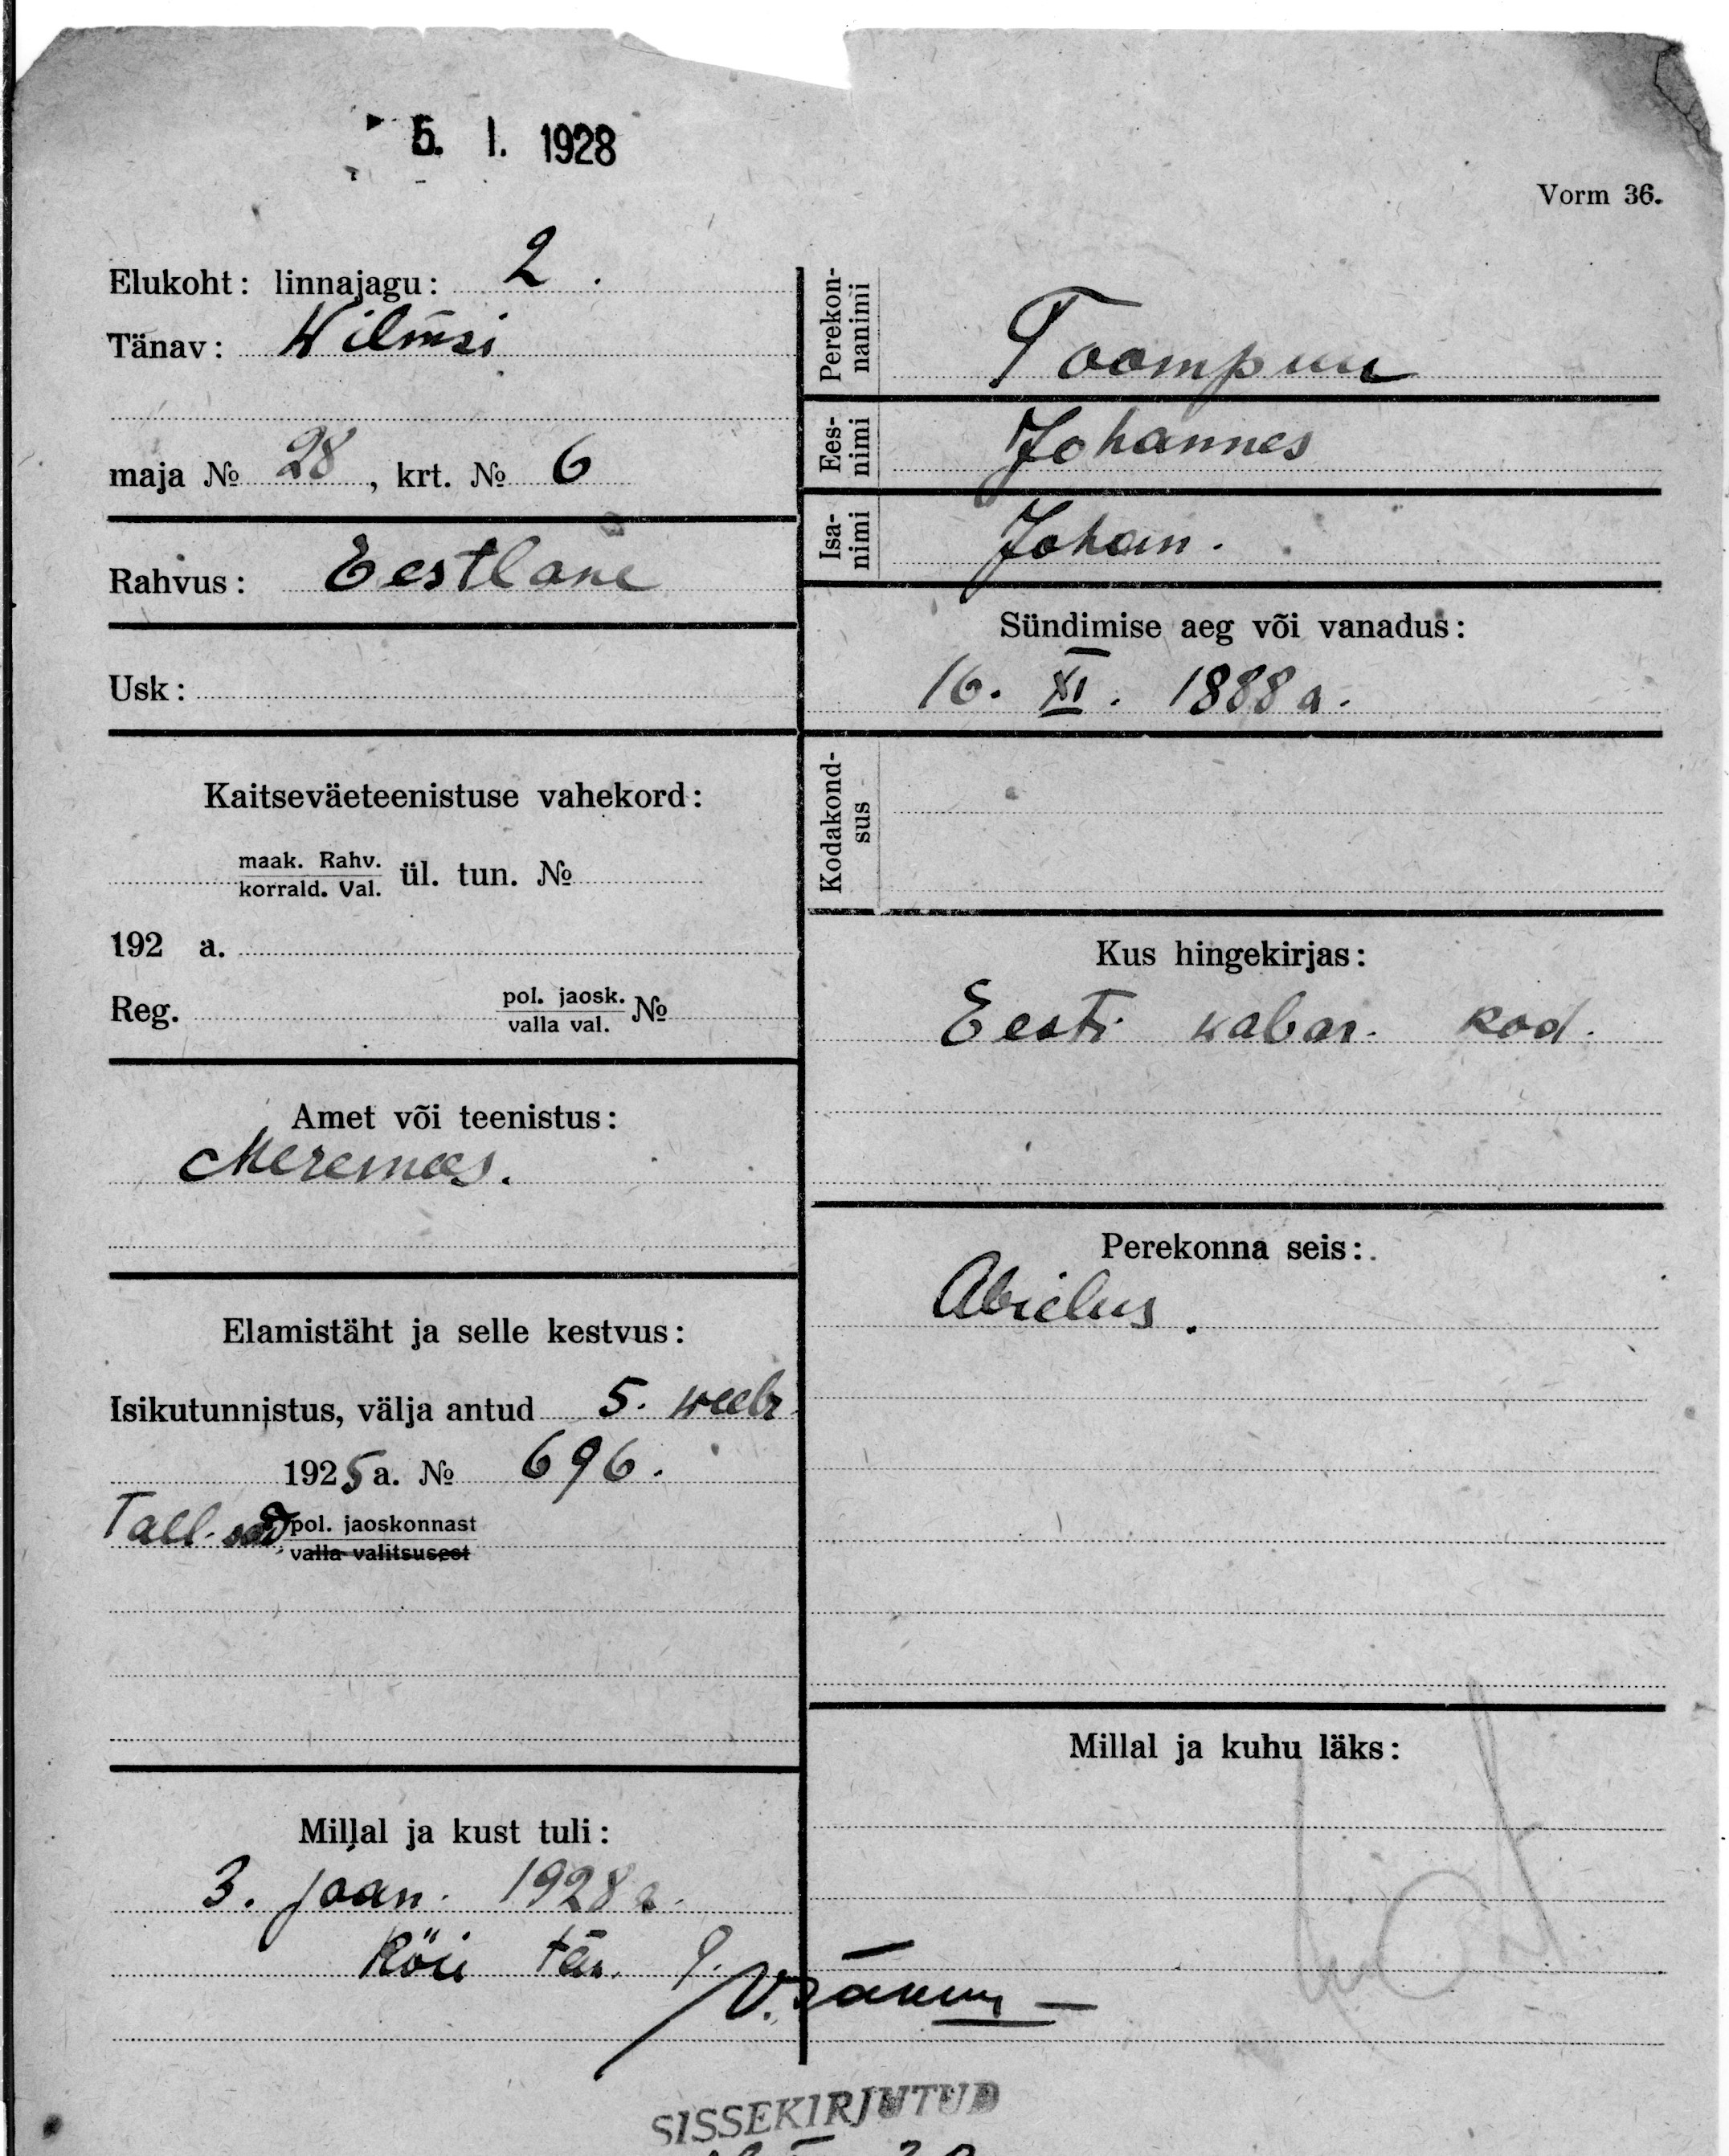 5. I. 1928
Vorm 36.
Elukoht: linnajagu: 2.
Tänav: Wilmsi
maja № 28, krt. № 6
Rahvus: Eestlane
Usk:
Kaitseväeteenistuse vahekord:
maak. Rahv.
korrald. Val. ül. tun. №
192 a.
Reg. pol. jaosk. №
valla val.
Amet või teenistus:
Meremees.
Elamistäht ja selle kestvus:
Isikutunnistus, välja antud 5. weebr.
1925 a. № 696.
Tall. pol. jaoskonnast
valla valitsusest
Millal ja kust tuli:
3. jaan. 1928 a.
Köie tän. 9.
Perekon-
nanimi
Toompuu
Ees-
nimi
Johannes
Isa-
nimi
Johan.
Sündimise aeg või vanadus:
16. XI. 1888 a.
Kodakond-
sus
Kus hingekirjas:
Eesti wabar. kod.
Perekonna seis:
Abielus.
Millal ja kuhu läks:
SISSEKIRJUTUD